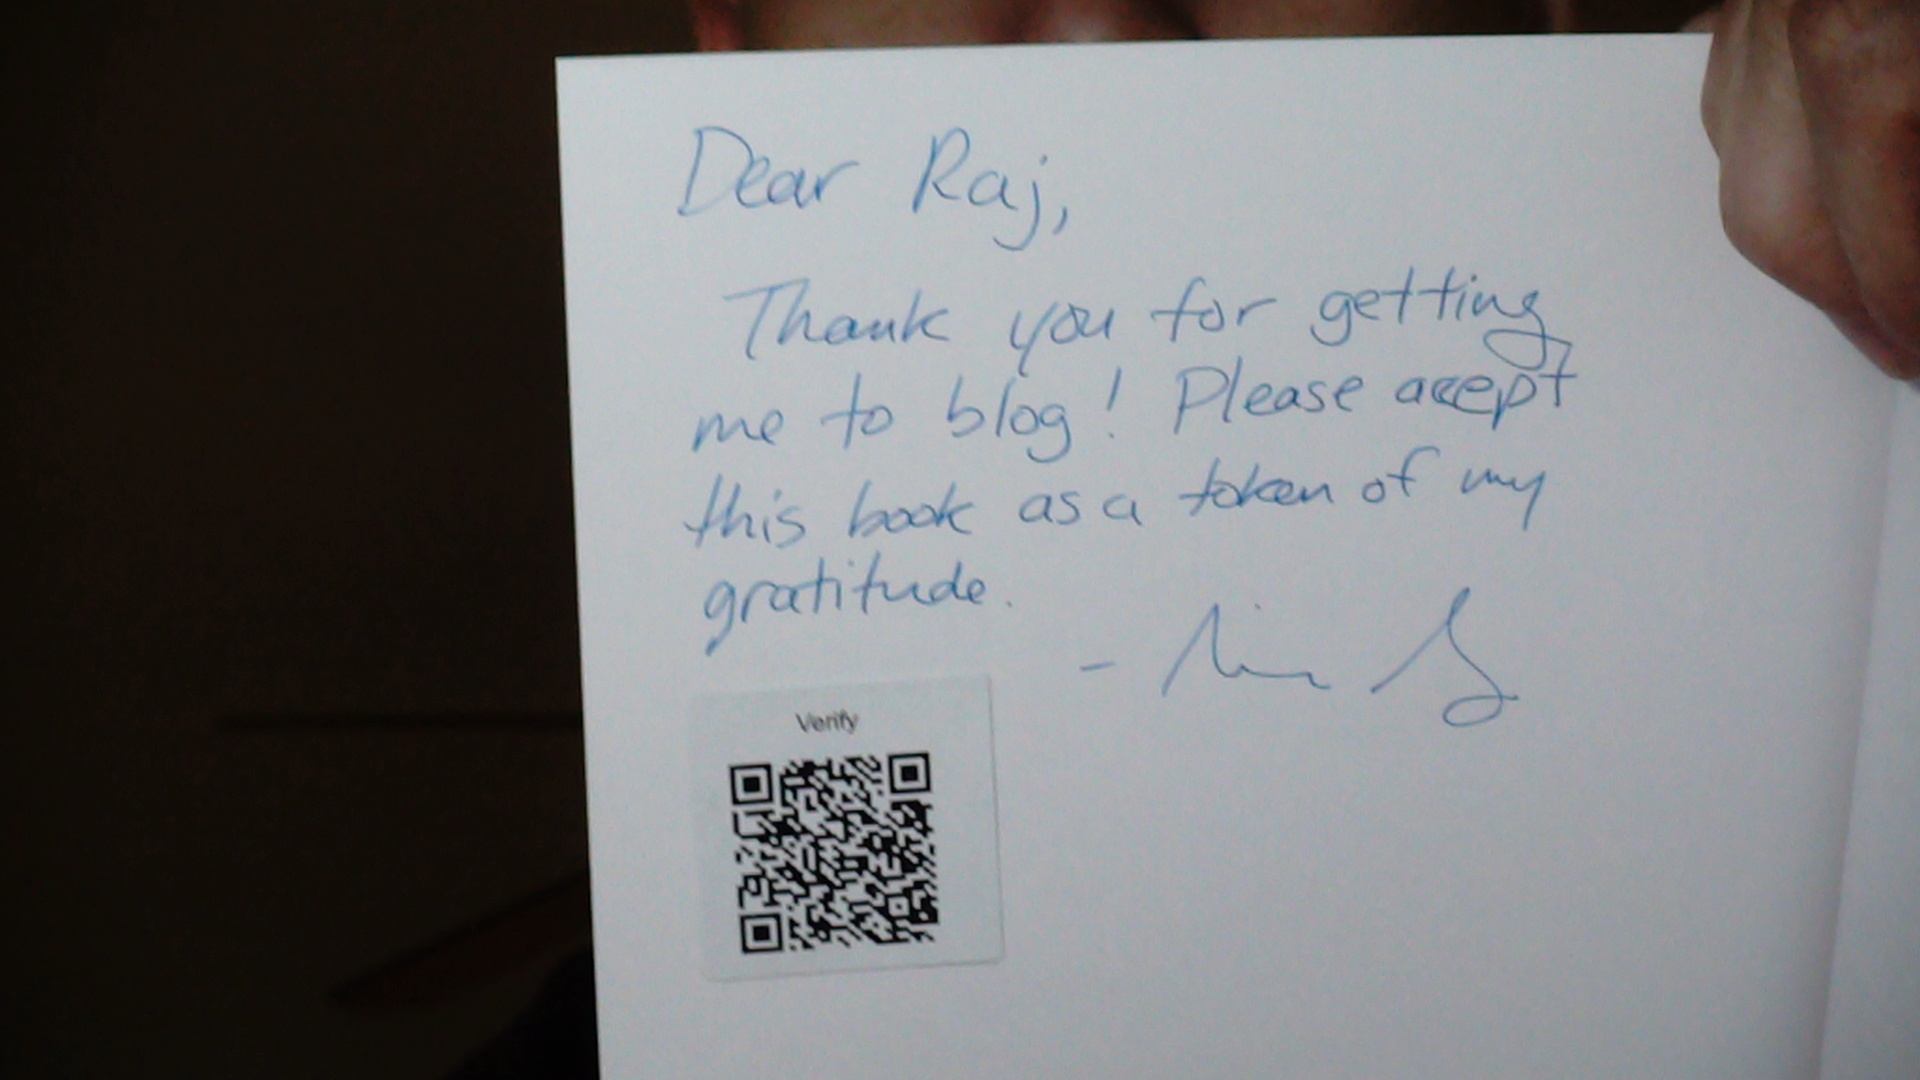 Dear Raj,
Thank you for getting
me to blog! Please accept
this book as a token of my
gratitude.
Verify